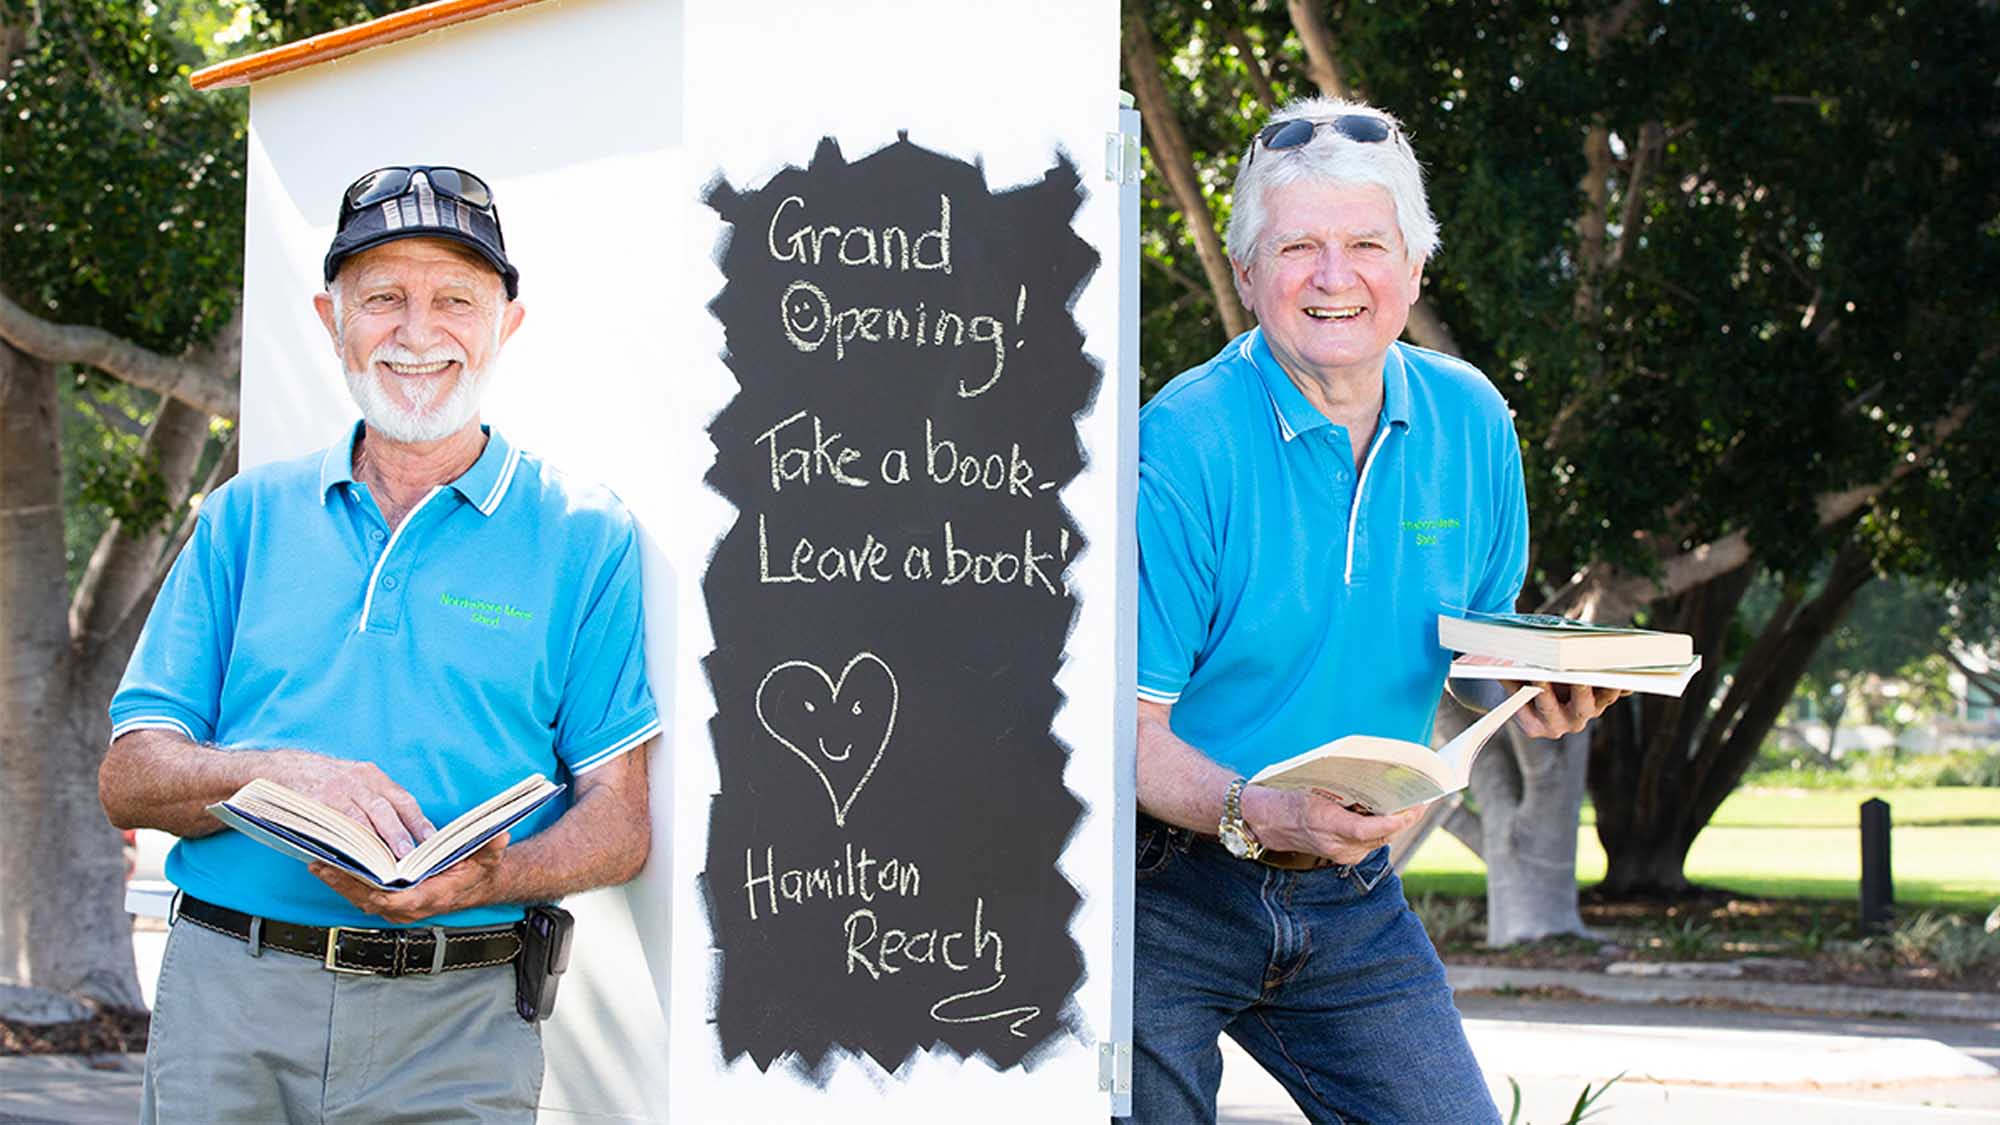 Grand
Opening!
Take a book-
Leave a book!
Hamilton
Reach
Northshore Mens
Shed
Shed